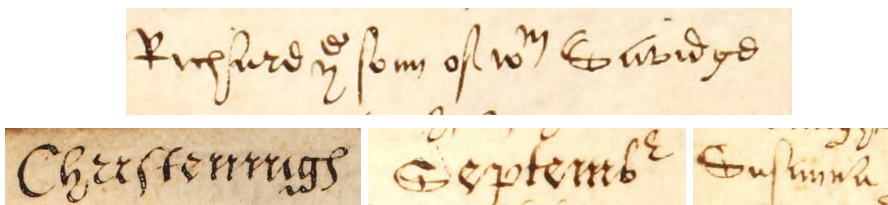 Richard yᵉ sonn of Wᵐ Savidge
Christenings Septembʳ Susanna